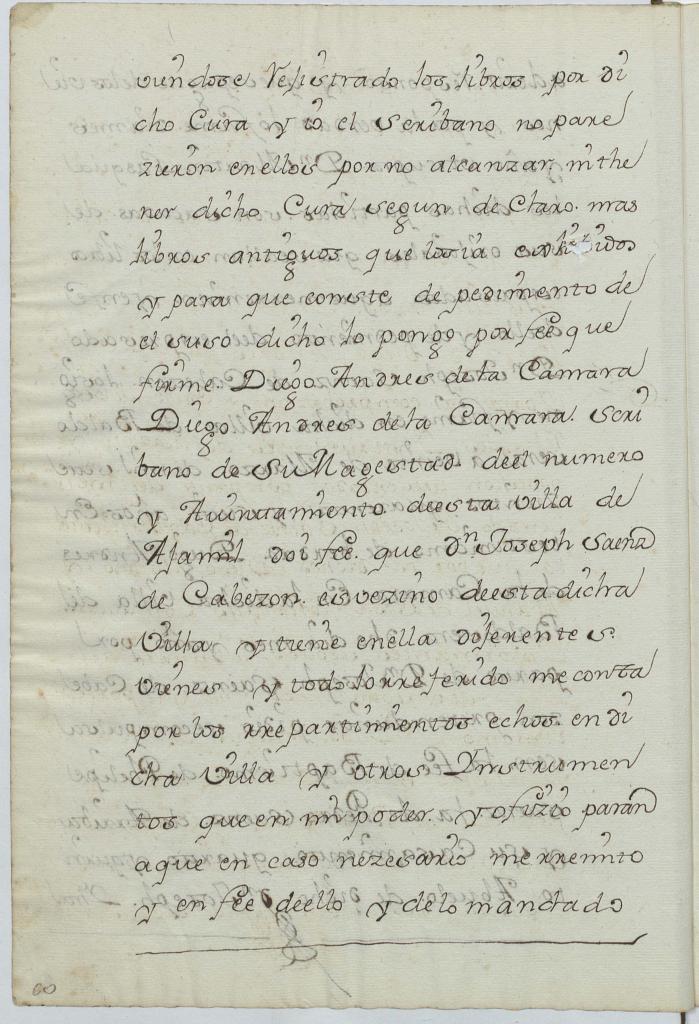 viendose Rejistrado los libros por di
cho Cura y io el scribano no pare
zieron en ellos por no alcanzar ni the
ner dicho Cura segun de Claro. mas
libros antiguos que los ia
y para que conste de pedimento de
el suso dicho lo pongo por fee que
firme. Diego Andres de la Camara
Diego Andres de la Camara. scri
bano de Su Magestad. de el numero
y Aiuntamiento de esta villa de
Ajamil doi fee. que Dn Joseph Saenz
de Cabezon. es vezino de esta dicha
Villa y tiene en ella diferentes.
vienes y todo lo rreferido me consta
por los rrepartimientos echos. en di
cha Villa y otros Ynstrumen
tos que en mi poder. y ofizio paran
a que en caso nezesario me rremito
y en fee de ello y de lo mandado
60